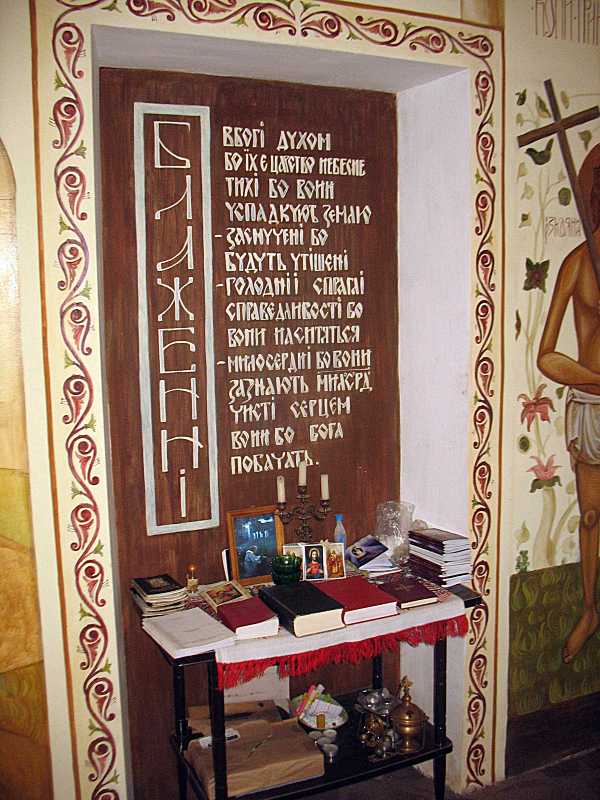 БЛАЖЕННІ
ВБОГІ ДУХОМ
БО ЇХ Є ЦАРСТВО НЕБЕСНЕ
ТИХІ БО ВОНИ
УСПАДКУЮТЬ ЗЕМЛЮ
- ЗАСМУЧЕНІ БО
БУДУТЬ УТІШЕНІ
- ГОЛОДНІ І СПРАГЛІ
СПРАВЕДЛИВОСТІ БО
ВОНИ НАСИТЯТЬСЯ
- МИЛОСЕРДНІ БО ВОНИ
ЗАЗНАЮТЬ МИЛОСЕРД
ЧИСТІ СЕРЦЕМ
ВОНИ БО БОГА
ПОБАЧАТЬ.